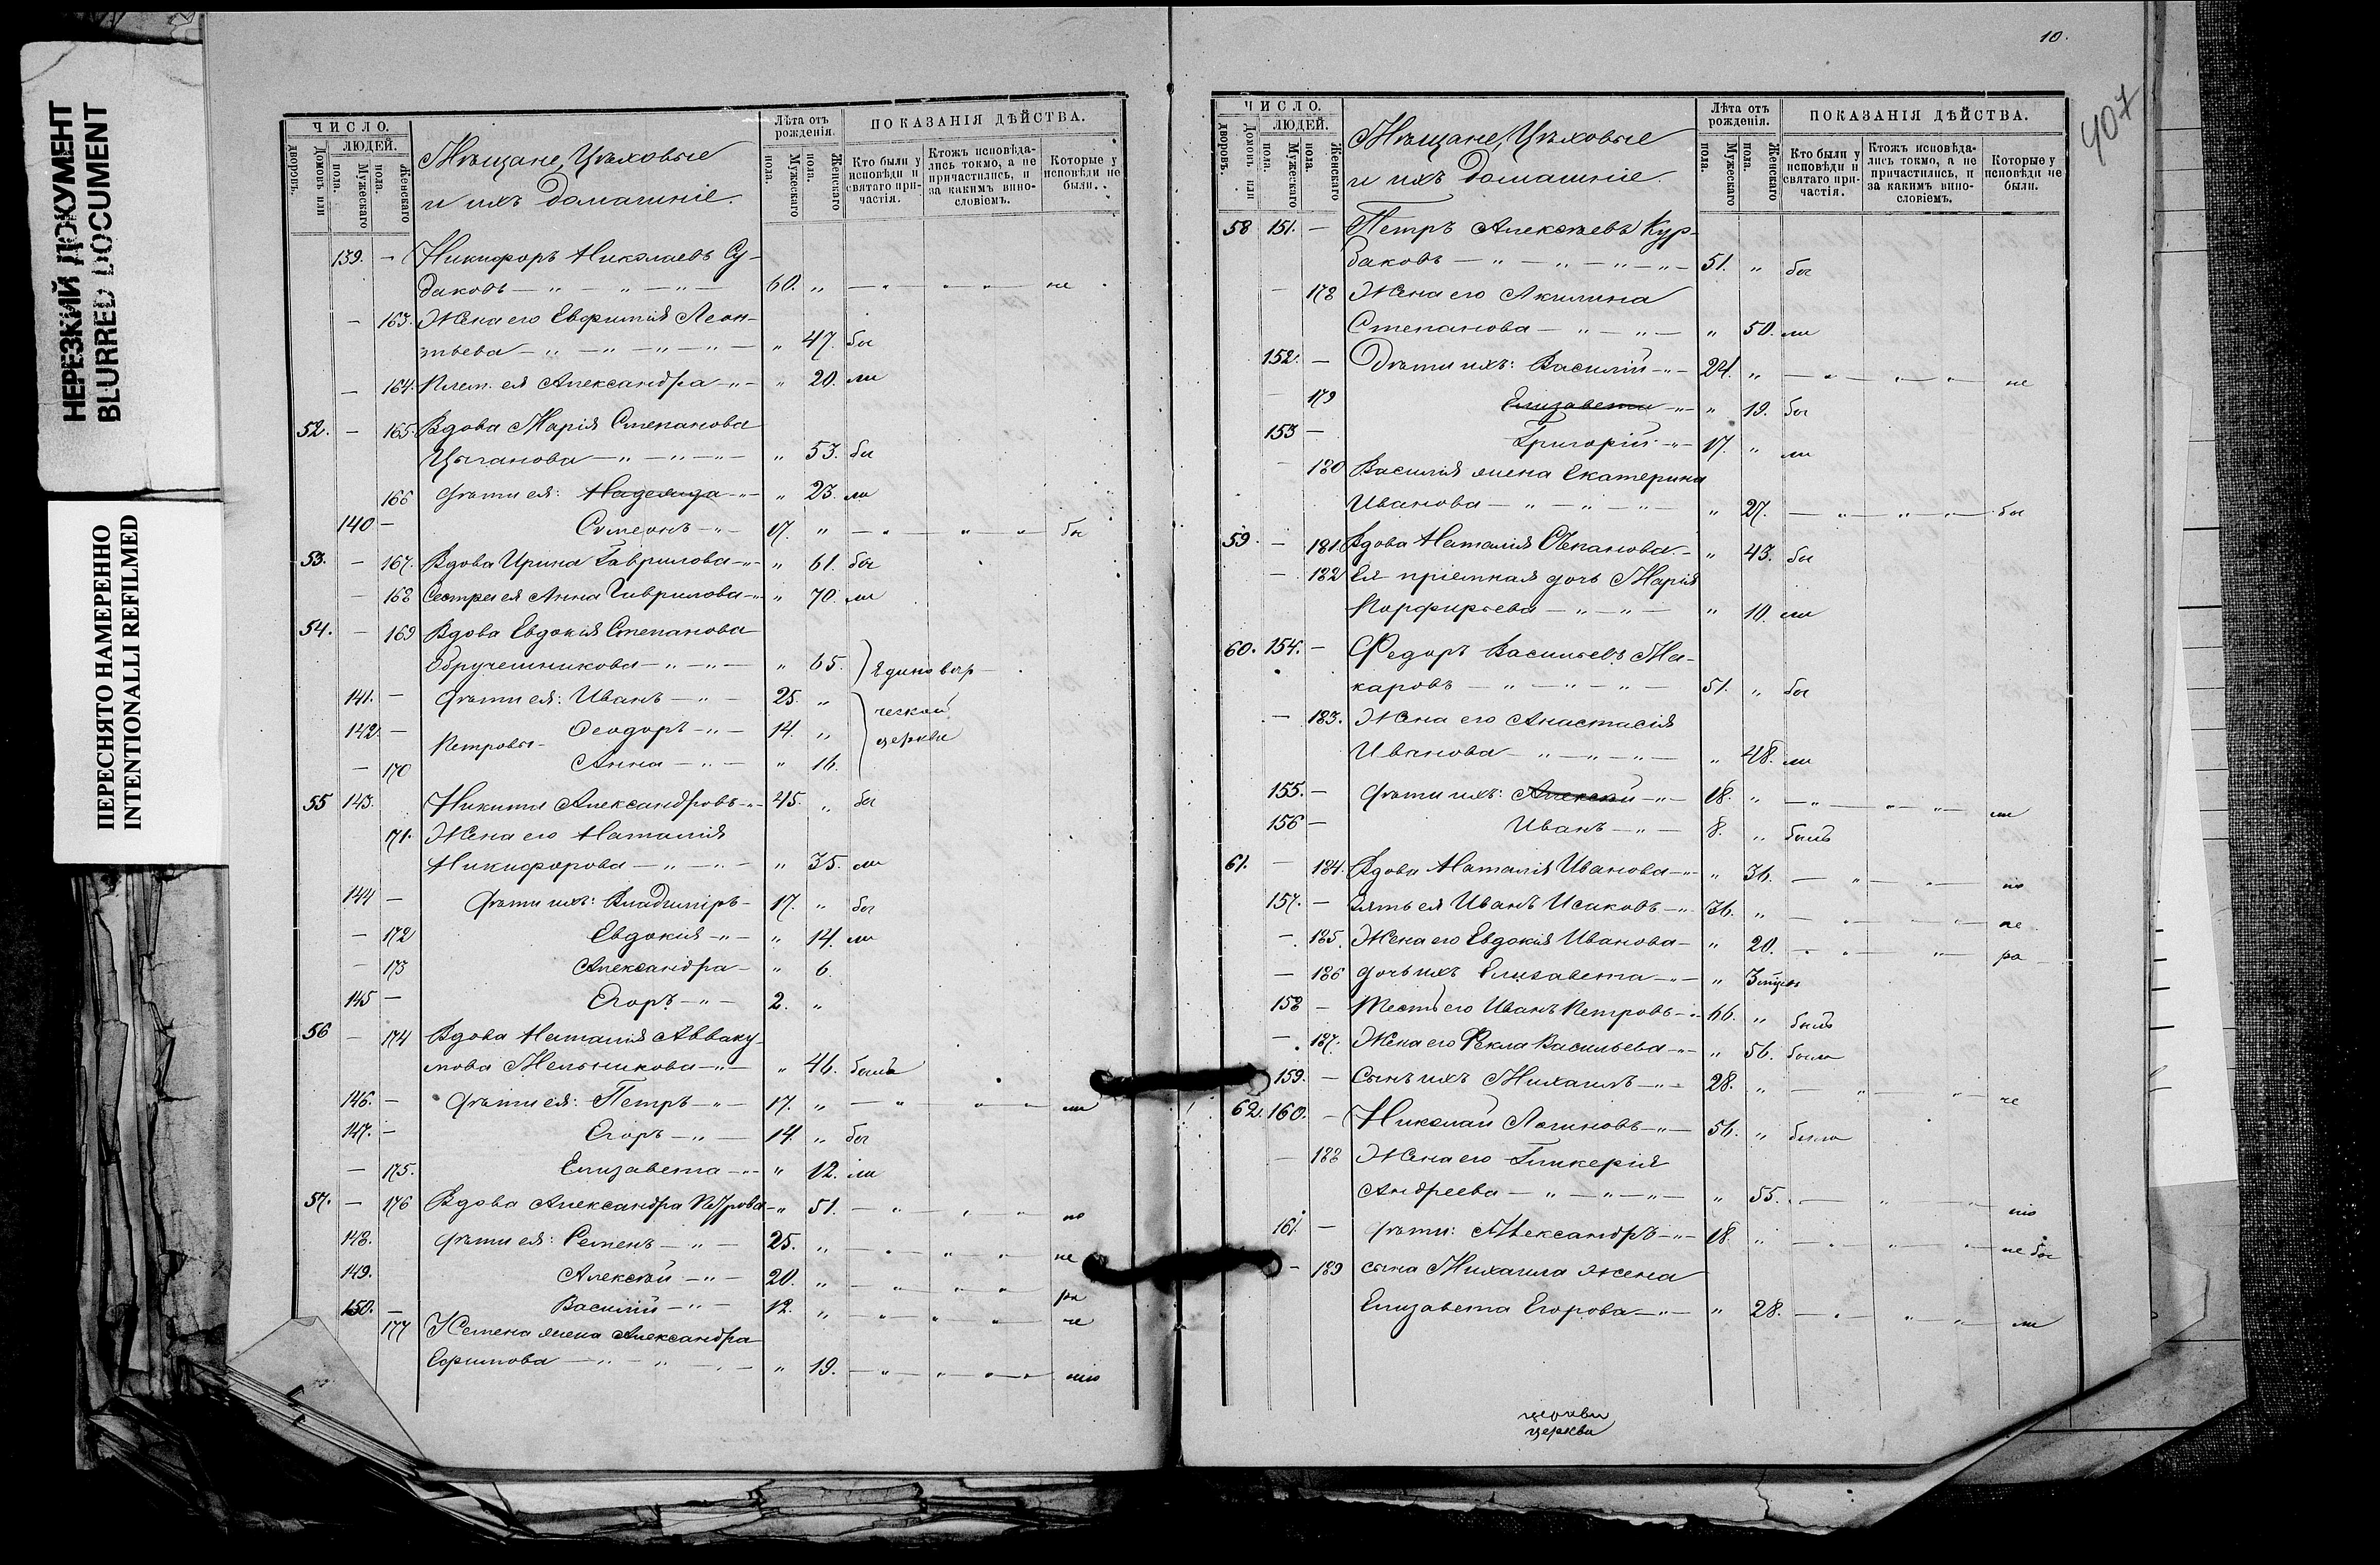 НЕРЕЗКИЙ ДОКУМЕНТ
BLURRED DOCUMENT
ПЕРЕСНЯТО НАМЕРЕННО
INTENTIONALLI REFILMED
ЧИСЛО.
ЛЮДЕЙ.
Домовъ или дворовъ.
Мужескаго пола.
Женскаго пола.
Мѣщане, Цѣховые
и ихъ домашніе.
Лѣта отъ рожденія.
Мужескаго пола.
Женскаго пола.
ПОКАЗАНІЯ ДѢЙСТВА.
Кто были у исповѣди и святаго причастія.
Ктожъ исповѣдались токмо, а не причастились, и за какимъ винословіемъ.
Которые у исповѣди не были.
139. — Никифоръ Николаевъ Су-
даковъ — " — " — " — 60. " — " " " — не
— 163. Жена его Евфимія Леон-
тьева — " — " — " — " — " 47. бы
— 164. Плем. ея Александра — " — " 20. ли
52. — 165. Вдова Марія Степанова
Цыганова — " — " — " — " 53. бы
166 Дѣти ея: Надежда — " — " 23. ли
140 — Симеонъ — " — 17. " — " — " — " бы
53. — 167. Вдова Ирина Гаврилова — " — " 61. бы
— 168 Сестра ея Анна Гаврилова — " — " 70. ли
54. — 169 Вдова Евдокія Степанова
Обручешникова — " — " — " 65. } Единовѣр-
141. — Дѣти ея: Иванъ — " — 25. " ческой
142. — Петровы — Ѳеодоръ — " — 14. " церкви
— 170 Анна — " — " 16.
55 143. Никита Александровъ — " — 45. " бы
171. Жена его Наталія
Никифорова — " — " — " 35. ли
144 — Дѣти ихъ: Владиміръ — 17. " бы
— 172 Евдокія — " — " 14. ли
— 173 Александра — " 6.
145 — Егоръ — " — 2. "
56 — 174 Вдова Наталія Авваку-
мова Мельникова — " — " 46. была
146. — Дѣти ея: Петръ — " — 17. " — " — " — " ли
147. — Егоръ — " — 14. " бы
— 175. Елизавета — " — " 12. ли
57. — 176 Вдова Александра Петрова — " 51. — " — " — "
148. Дѣти ея: Семенъ — " — 25. " — " " " не
149. Алексѣй — " — 20. " — " " " ра
150. — Василій — " — 12. " " " " не
177 Семена жена Александра
Ефимова — " — " — " — " 19. — " — " — " — " нію
10.
407
ЧИСЛО.
ЛЮДЕЙ.
Домовъ или дворовъ.
Мужескаго пола.
Женскаго пола.
Мѣщане, Цѣховые
и ихъ домашніе.
Лѣта отъ рожденія.
Мужескаго пола.
Женскаго пола.
ПОКАЗАНІЯ ДѢЙСТВА.
Кто были у исповѣди и святаго причастія.
Ктожъ исповѣдались токмо, а не причастились, и за какимъ винословіемъ.
Которые у исповѣди не были.
58 151. — Петръ Алексѣевъ Кур-
баковъ — " — " — " — " — 51. " бы
— 178 Жена его Акилина
Степанова — " — " — " 50. ли
152. — Дѣти ихъ: Василій — " — 24. " — " — " — " не
— 179 Елизавета — " — " 19. бы
153 — Григорій — " — 17. " ли
— 180 Василія жена Екатерина
Иванова — " — " — " — " 27. — " — " — " — бы
59. — 181. Вдова Наталія Степанова — " 43. бы
— 182 Ея пріемная дочь Марія
Порфирьева — " — " — " 10. ли
60. 154. — Федоръ Васильевъ Ма-
каровъ — " — " — " — 51. " бы
— 183. Жена его Анастасія
Иванова — " — " — " — " 48. ли
155. — Дѣти ихъ: Алексѣй — " — 18. " — " — " — " ли
156 — Иванъ — " — 8. " былъ
61. — 184. Вдова Наталія Иванова — " — " 36. — " — " —
157. — Зять ея Иванъ Исаковъ — " 36. " — " " не
— 185. Жена его Евдокія Иванова — " 20. " " " ра
— 186 дочь ихъ Елизавета — " — " 3
158 — Тесть его Иванъ Петровъ — " 66. " былъ
— 187. Жена его Ѳекла Васильева — " — " 56. была
159. — Сынъ ихъ Михаилъ — " — 28. " — " — " не
62. 160. — Николай Логиновъ — " — 56. " была
— 188 Жена его Гликерія
Андреева — " — " — " — " 55. — " — " нію
161. — Дѣти: Александръ — " — 18. " — " — " — " не бы
— 189 сына Михаила жена
Елизавета Егорова — " — " 28. — " — " — " ли
церкви
церкви